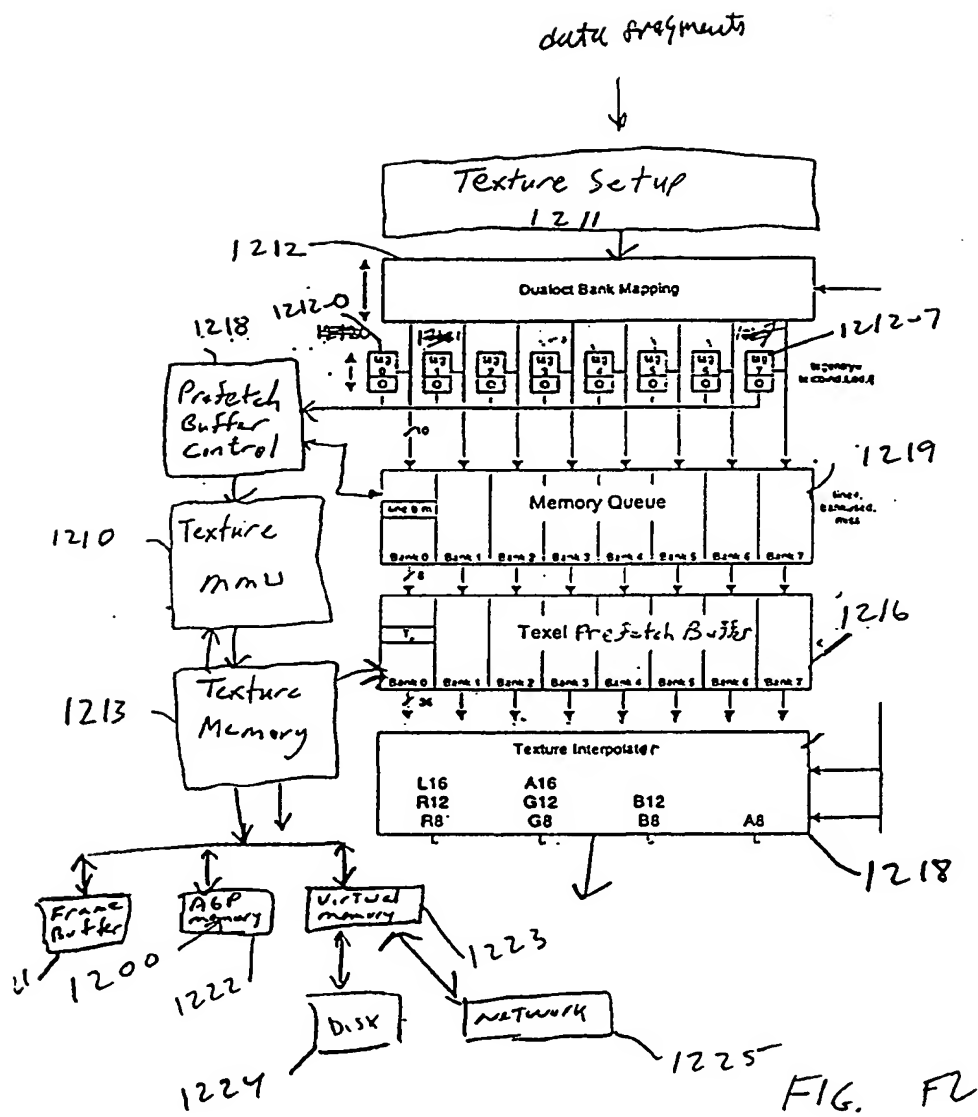 data fragments
Texture Setup
1211
1212
Dualoct Bank Mapping
1212-0
1212-7
1218
Prefetch
Buffer
Control
0 0 0 0 0 0 0 0
10
1219
Memory Queue
Bank 0 Bank 1 Bank 2 Bank 3 Bank 4 Bank 5 Bank 6 Bank 7
1210
Texture
MMU
8
1216
Texel Prefetch Buffer
Bank 0 Bank 1 Bank 2 Bank 3 Bank 4 Bank 5 Bank 6 Bank 7
36
1213
Texture
Memory
Texture Interpolator
L16 A16
R12 G12 B12
R8 G8 B8 A8
1218
Frame
Buffer
AGP
memory
Virtual
memory
1200
1222
1223
Disk
Network
1224
1225
FIG. F2